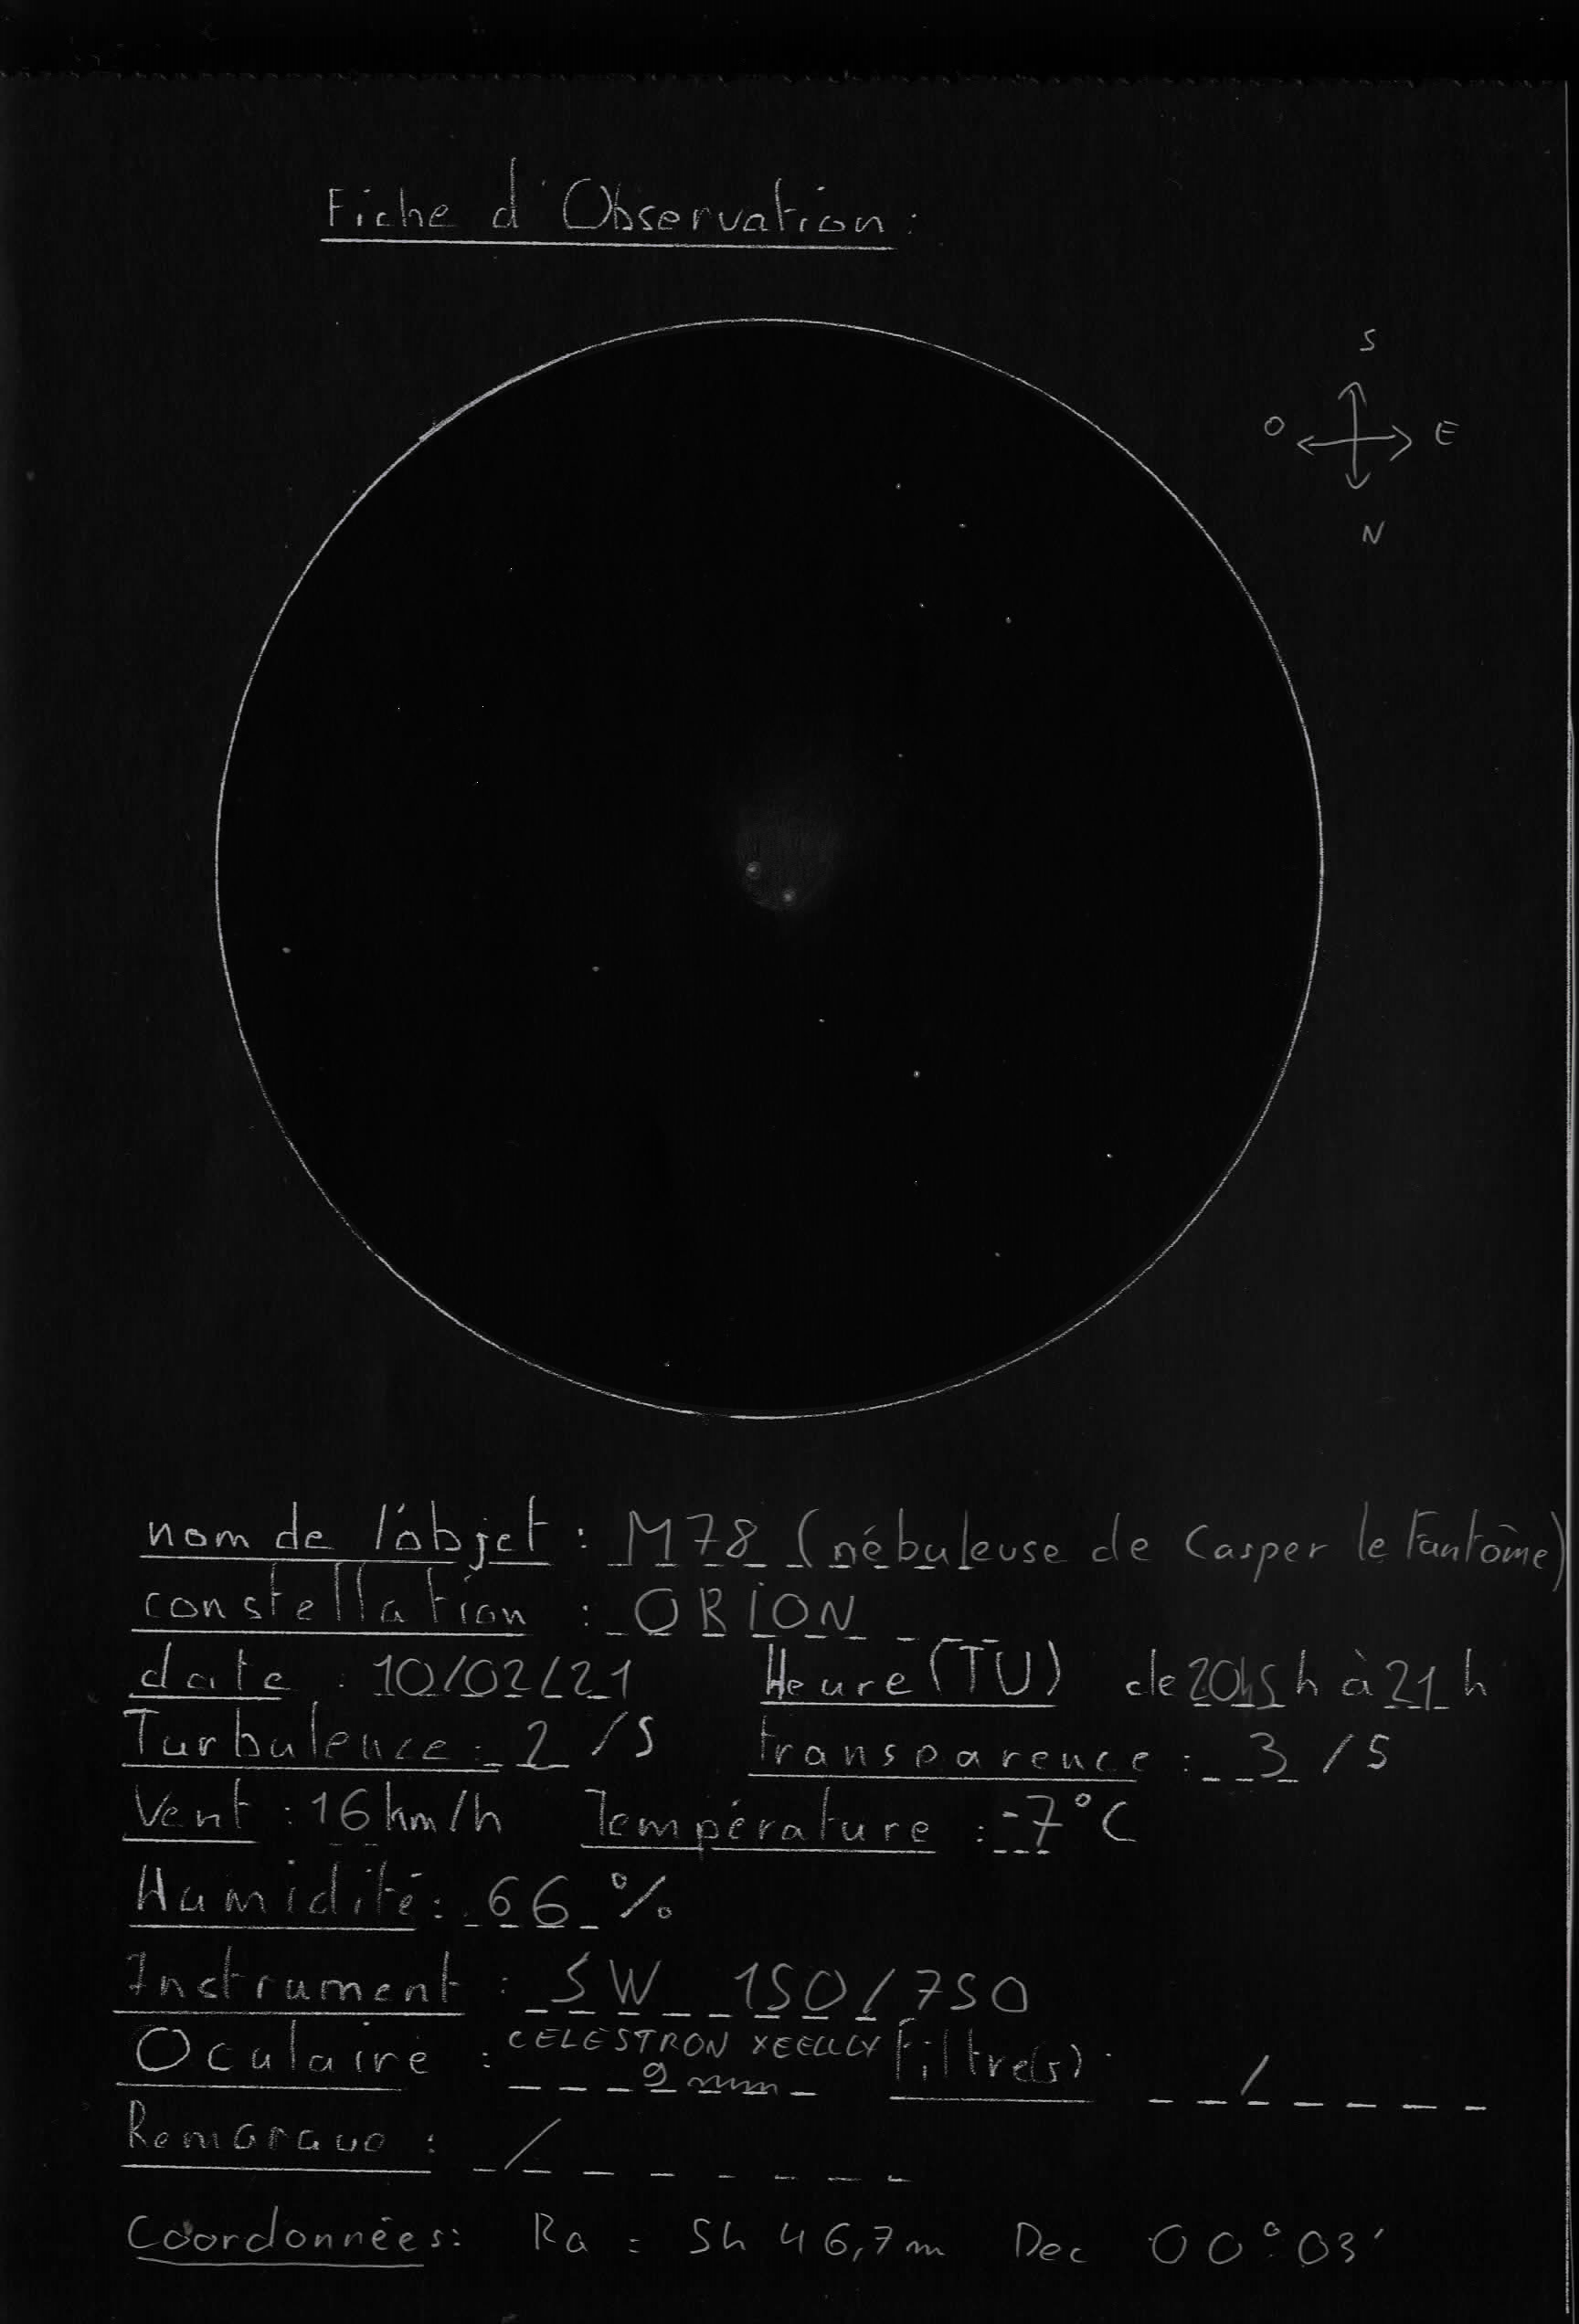 Fiche d'Observation :
S
O E
N
nom de l'objet : M78 (nébuleuse de Casper le Fantôme)
constellation : ORION
date : 10/02/21 Heure (TU) de 20h5 h à 21 h
Turbulence : 2 /5 transparence : 3 /5
Vent : 16 km/h Température : -7°C
Humidité : 66 %
Instrument : SW 150/750
Oculaire : CELESTRON Filtre(s) : /
9 mm
Remarque : /
Coordonnées : Ra = 5h 46,7m Dec 00° 03'